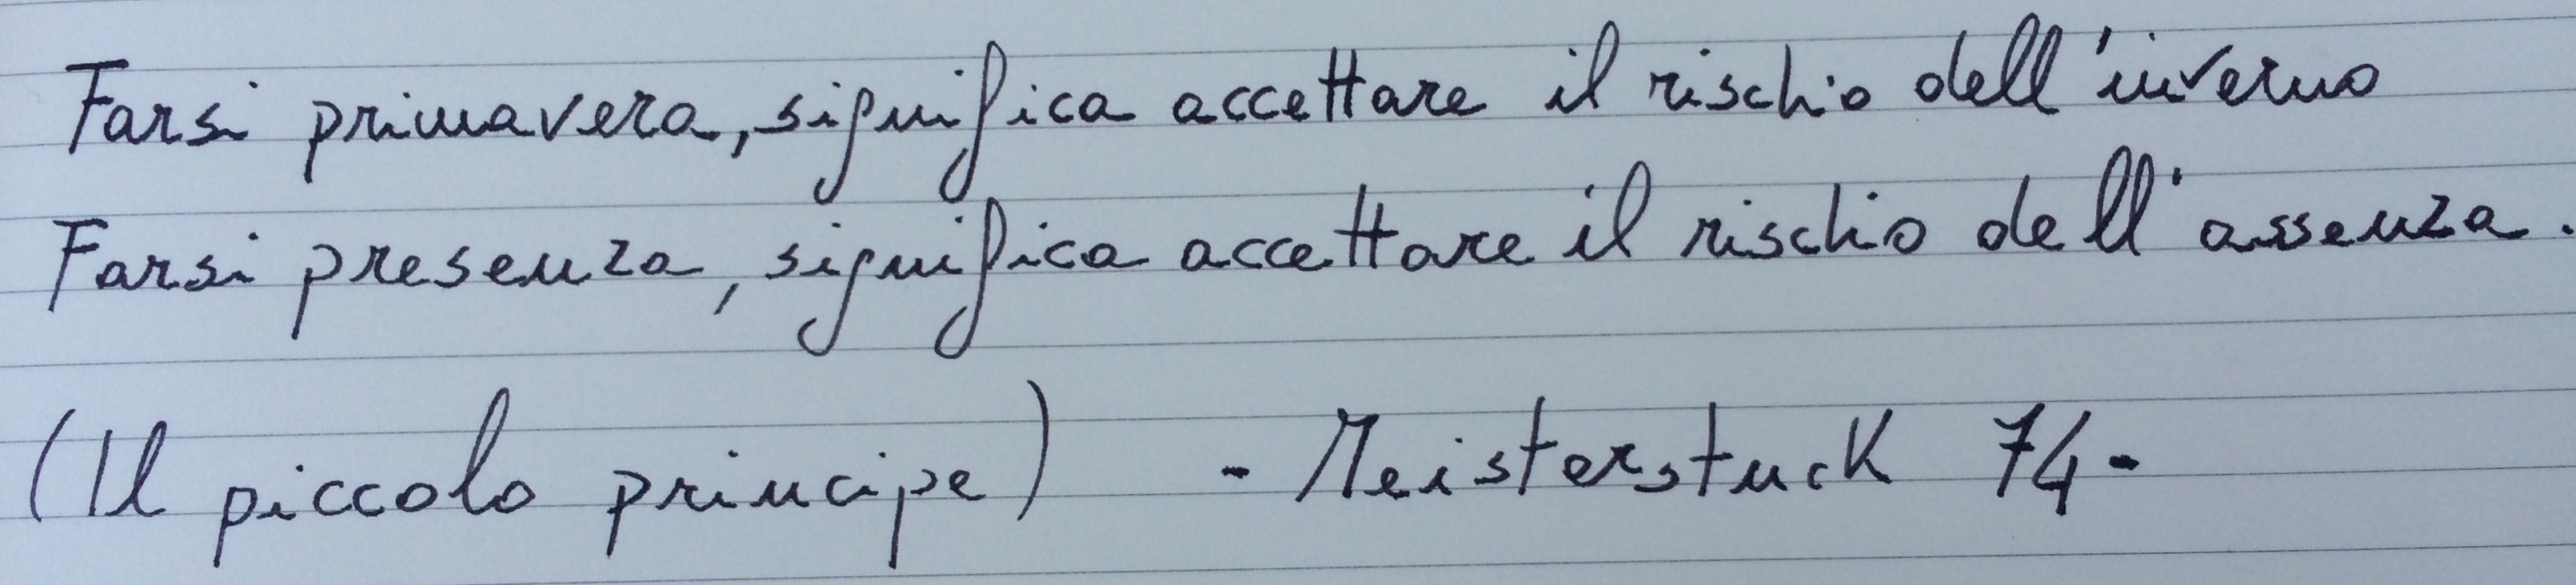 Farsi primavera, significa accettare il rischio dell'inverno
Farsi presenza, significa accettare il rischio dell'assenza.
(Il piccolo principe) - Meisterstuck 74-